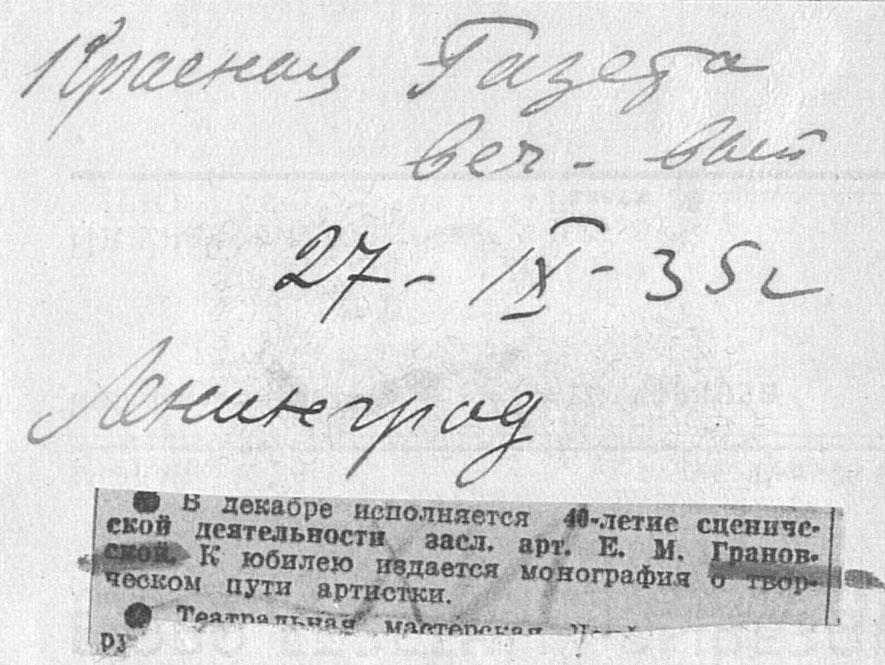 Красная Газета
веч - вып
27 - IX - 35 г
Ленинград
В декабре исполняется 40-летие сцениче-
ской деятельности засл. арт. Е. М. Гранов-
ской. К юбилею издается монография о твор-
ческом пути артистки.
Театральная мастерская
ру